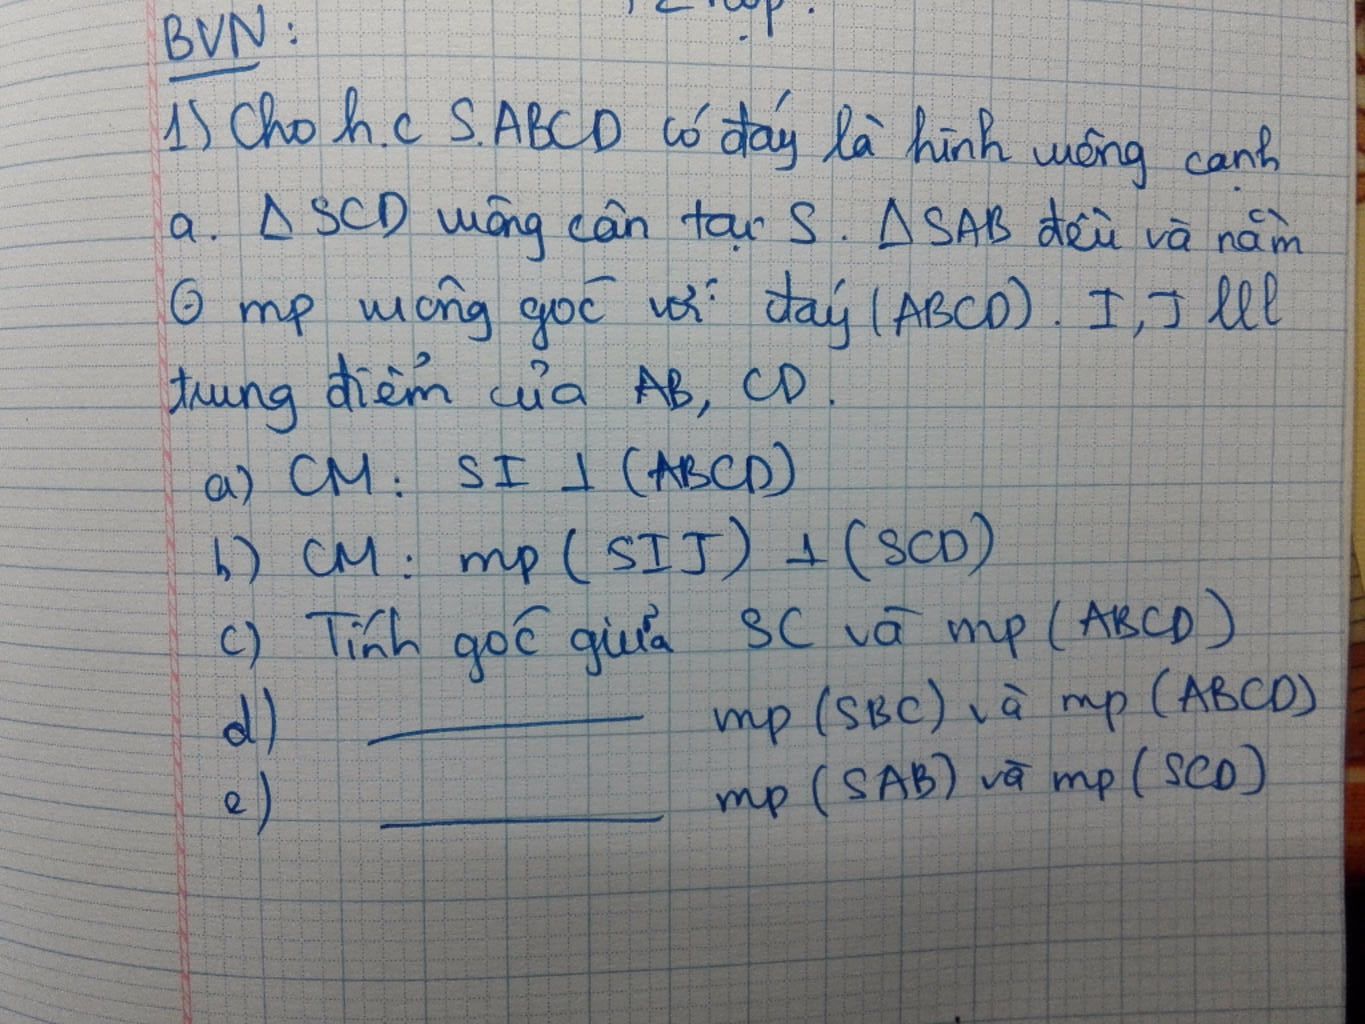 BVN:
1) Cho h.c S.ABCD có đáy là hình vuông cạnh
a. Δ SCD vuông cân tại S. Δ SAB đều và nằm
mp vuông góc với đáy (ABCD). I, J lll
trung điểm của AB, CD.
a) CM: SI ⊥ (ABCD)
b) CM: mp (SIJ) ⊥ (SCD)
c) Tính góc giữa SC và mp (ABCD)
d) ——— mp (SBC) và mp (ABCD)
e) ——— mp (SAB) và mp (SCD)